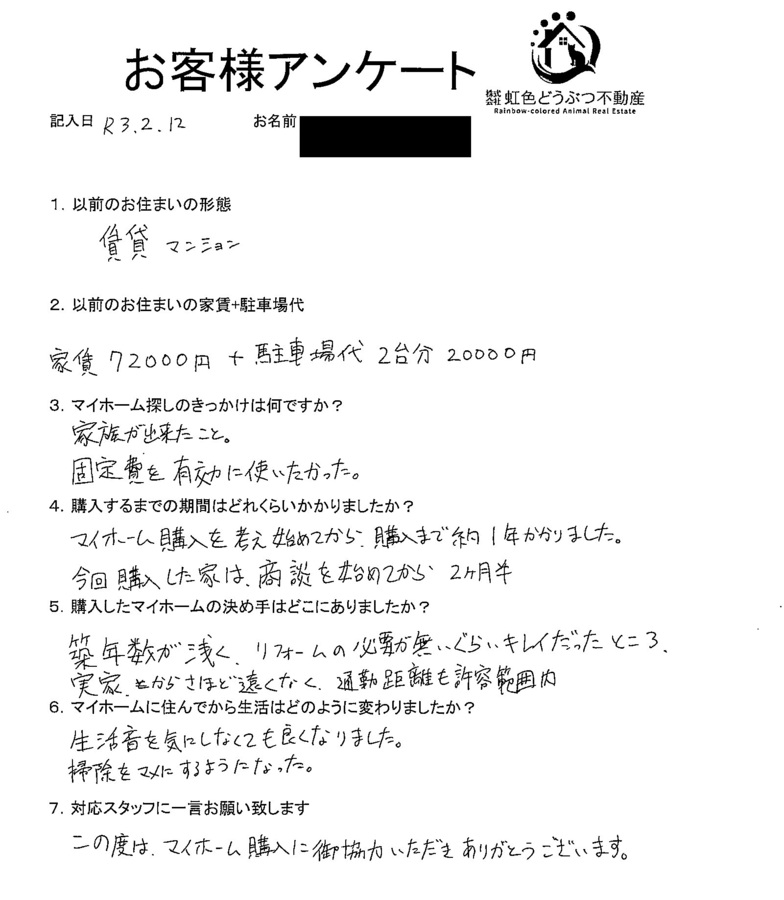 お客様アンケート
株式会社 虹色どうぶつ不動産
Rainbow-colored Animal Real Estate
記入日 R3.2.12 お名前
1. 以前のお住まいの形態
賃貸 マンション
2. 以前のお住まいの家賃+駐車場代
家賃 72000円 + 駐車場代 2台分 20000円
3. マイホーム探しのきっかけは何ですか？
家族が出来たこと。
固定費を有効に使いたかった。
4. 購入するまでの期間はどれくらいかかりましたか？
マイホーム購入を考え始めてから、購入まで約1年かかりました。
今回購入した家は、商談を始めてから 2ヶ月半
5. 購入したマイホームの決め手はどこにありましたか？
築年数が浅く、リフォームの必要が無いぐらいキレイだったところ、
実家、からさほど遠くなく、通勤距離も許容範囲内
6. マイホームに住んでから生活はどのように変わりましたか？
生活音を気にしなくても良くなりました。
掃除をマメにするようになった。
7. 対応スタッフに一言お願い致します
この度は、マイホーム購入に御協力いただきありがとうございます。